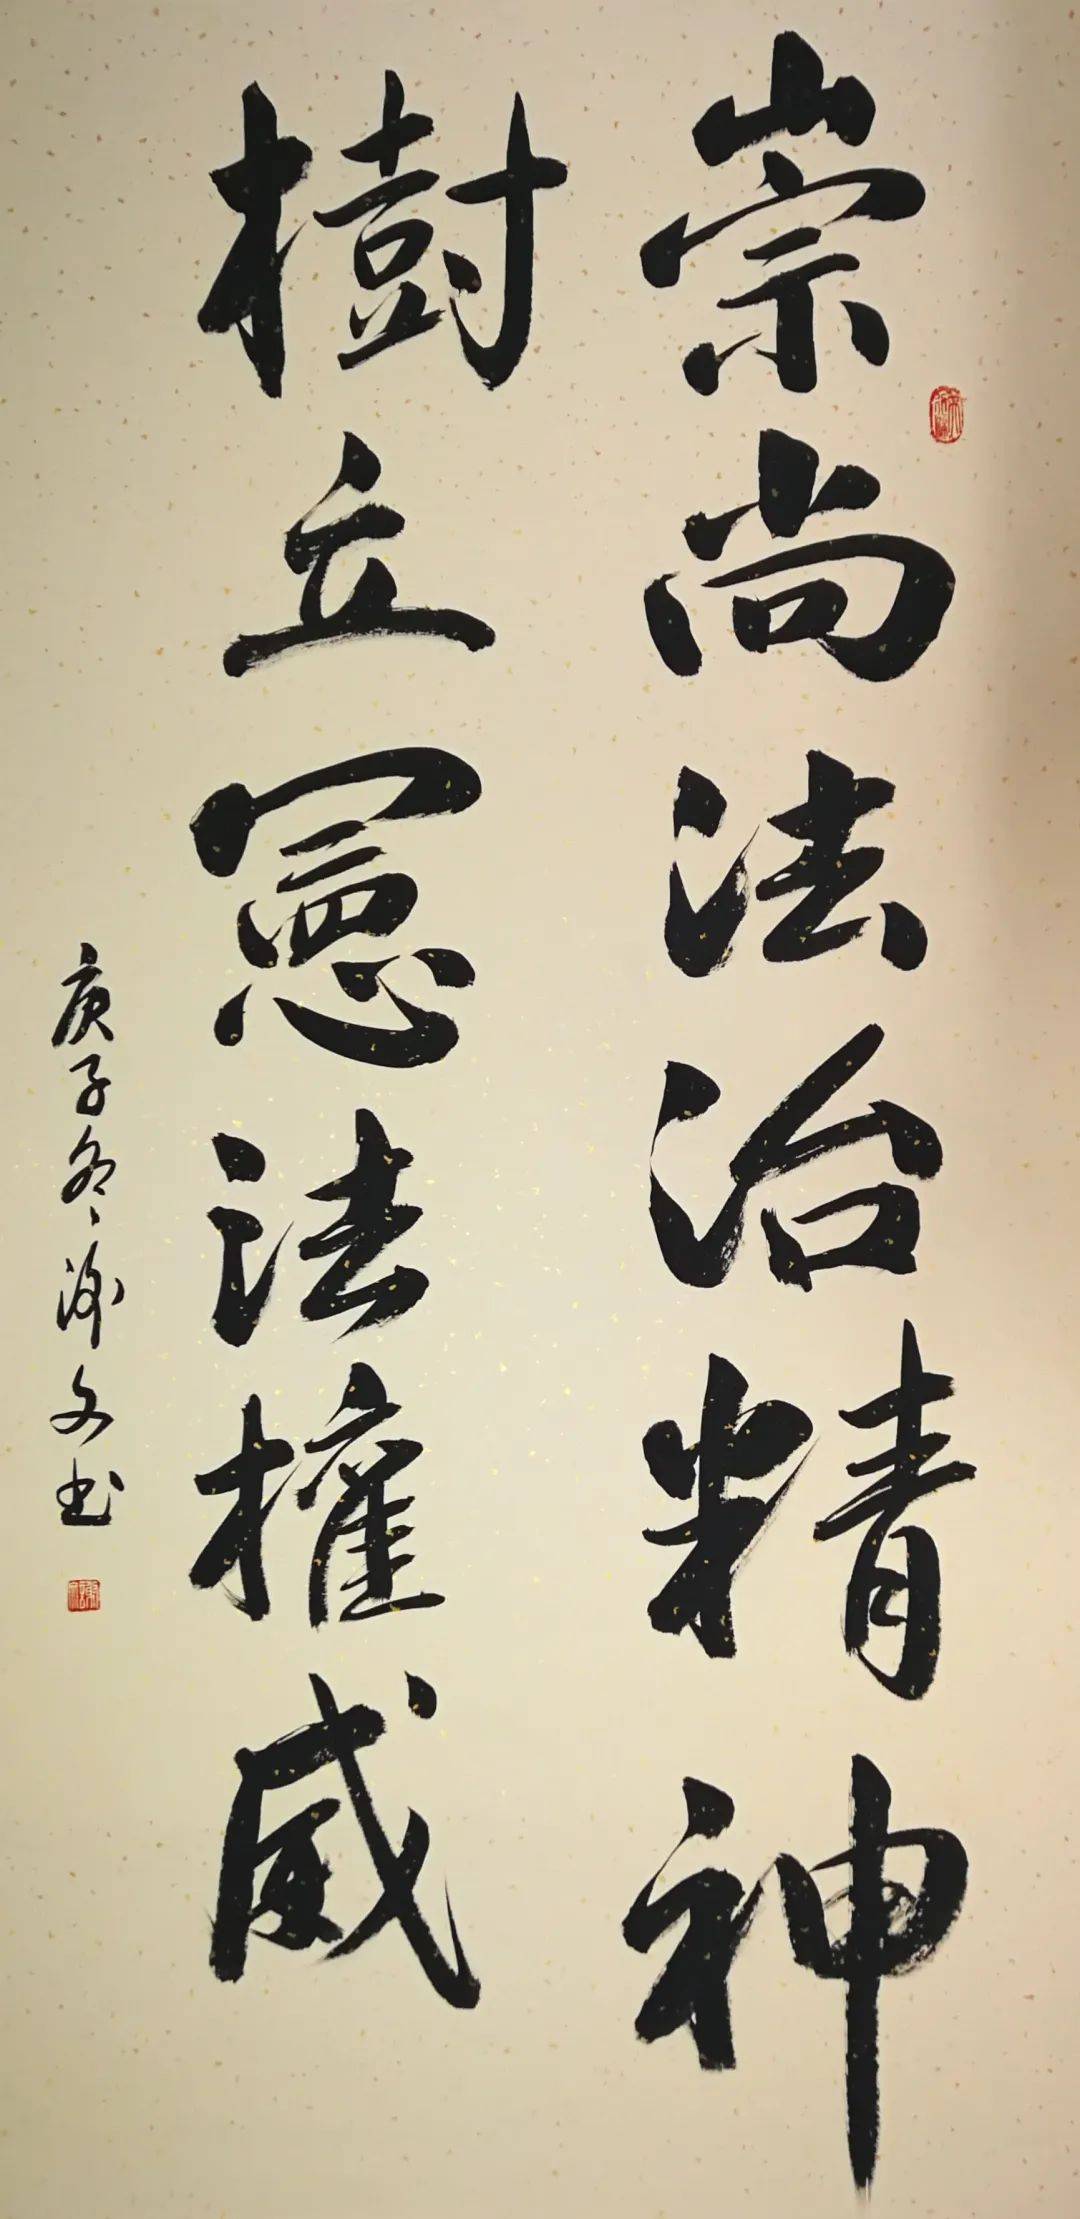 崇尚法治精神
樹立憲法權威
庚子冬謝文书